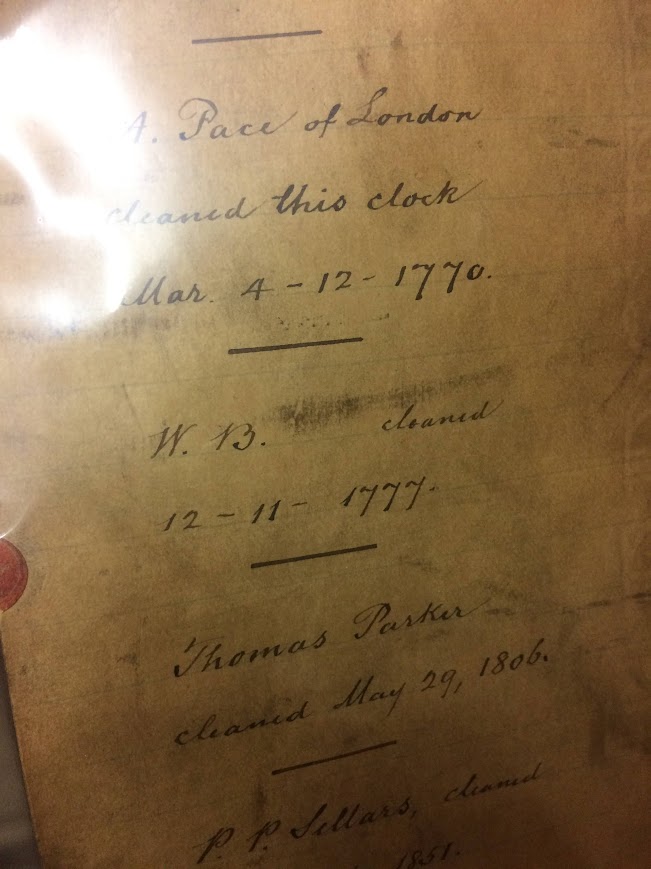 A. Pace of London
cleaned this clock
Mar. 4-12-1770.
W. B. cleaned
12-11- 1777.
Thomas Parker
cleaned May 29, 1806.
P. P. Sellars, cleaned
1851.